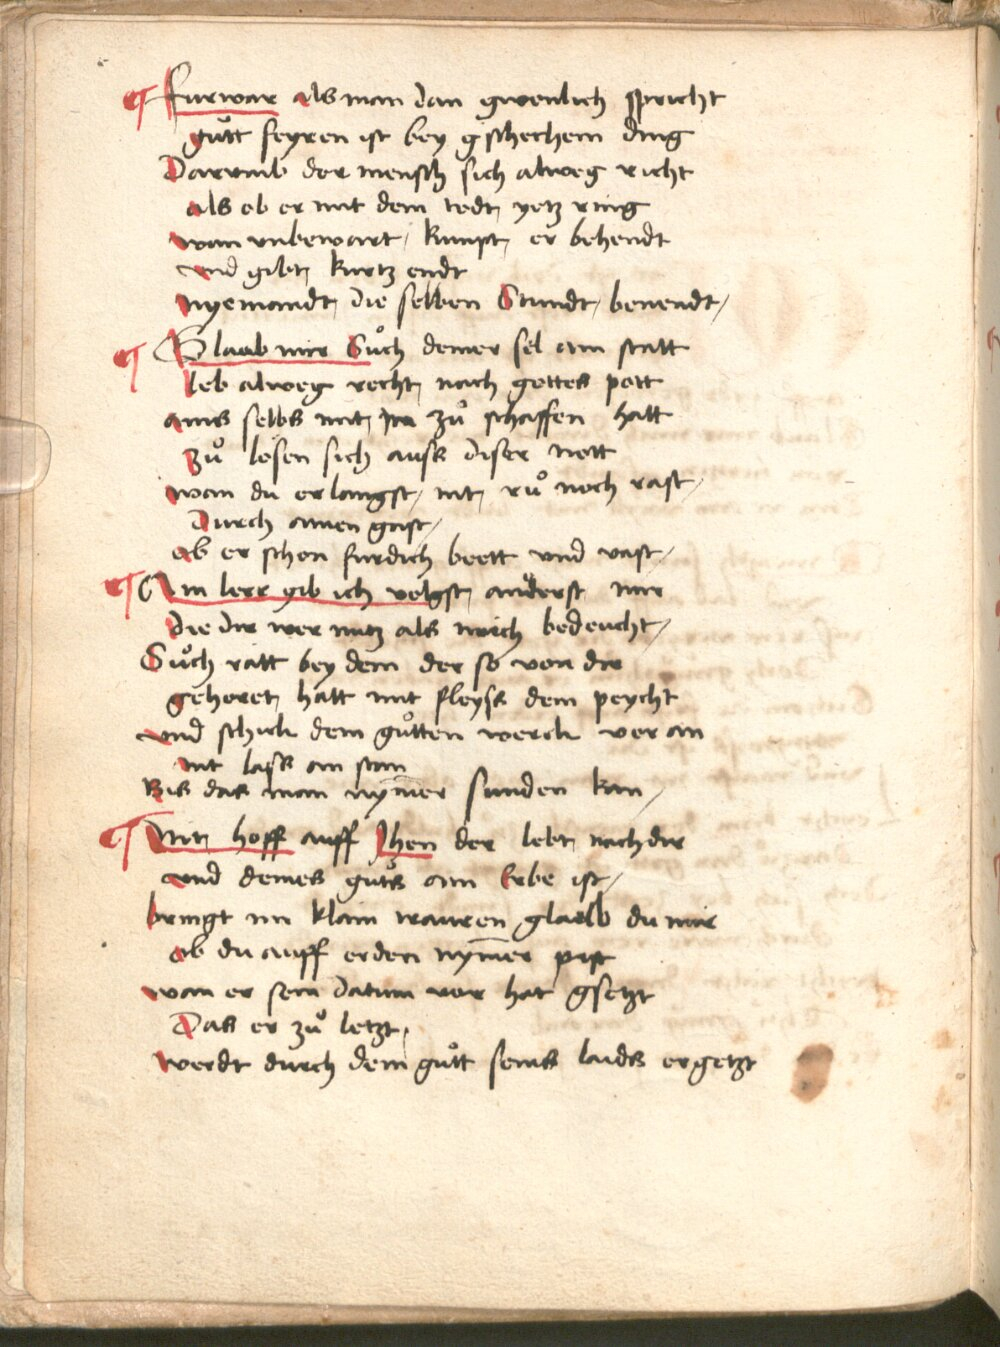 ¶ Furwar als man dan gwenlich spricht
gůtt feyren ist bey gschechem ding
Darumb der mensch sich alweg richt
als ob er mit dem todt yetz ring
wan unbewart / kumpt er behendt
und gibt kurtz endt
nyemandt die selben Stundt / benendt /
¶ Glaub mir Sůch deiner sel ain statt
leb alweg recht nach gottes pott
ains selbs mit zů schaffen hatt
zů lösen sich auss diser nott
wan du erlangst / nit růo noch rast /
Durch ainen gast /
ob er schon fur dich beett und vast /
¶ Ain lerr gib ich volgst anderst mir
die dir wer nutz als mich bedeucht /
Sůch ratt bey dem der so von dir
gehoret hatt mit fleyss dem peycht
und schick dem gůtten werck voran
nit lass an stan
Bis das man nym̄er sunden kan /
¶ Nit hoff auff Jhen der lebt nach dir
und deines gůts ain Erbe ist /
bringt im klain trauren glaub du mir
ob du auff erden nym̄er pist
wan er sein datum vor hat gsetzt
Das er zů letzt /
werdt durch dein gůtt seins laids ergetzt